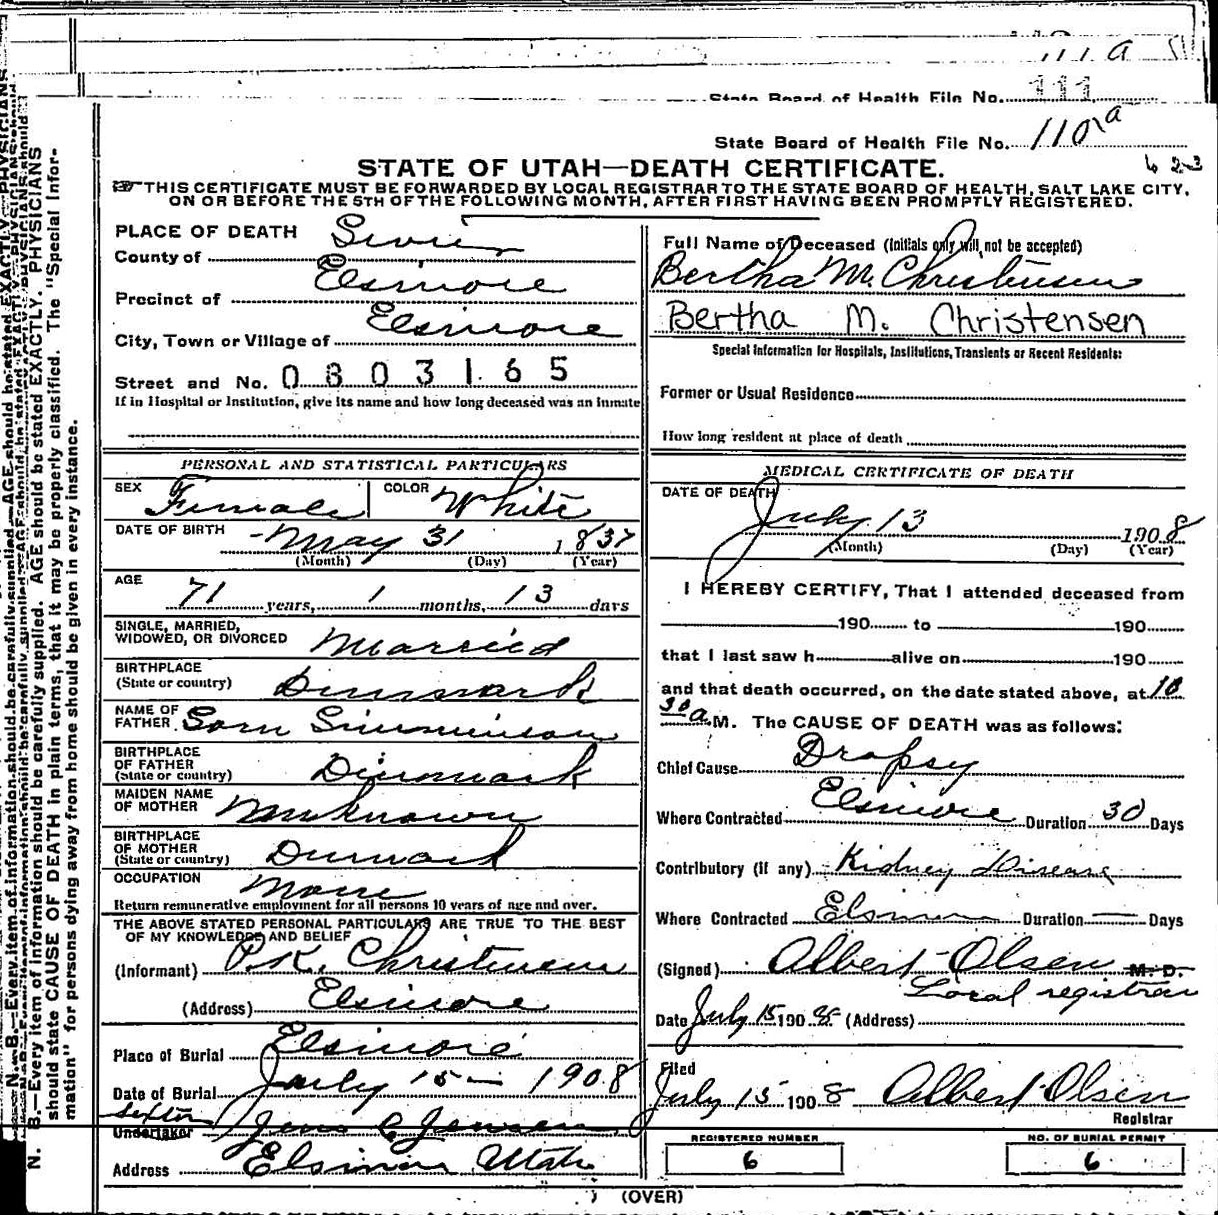 111 a
State Board of Health File No. 111
State Board of Health File No. 110 a
423
STATE OF UTAH—DEATH CERTIFICATE.
THIS CERTIFICATE MUST BE FORWARDED BY LOCAL REGISTRAR TO THE STATE BOARD OF HEALTH, SALT LAKE CITY,
ON OR BEFORE THE 5TH OF THE FOLLOWING MONTH, AFTER FIRST HAVING BEEN PROMPTLY REGISTERED.
PLACE OF DEATH
County of Sevier
Precinct of Elsinore
City, Town or Village of Elsinore
Street and No. 0803165
If in Hospital or Institution, give its name and how long deceased was an inmate
PERSONAL AND STATISTICAL PARTICULARS
SEX Female COLOR White
DATE OF BIRTH May 31 1837
(Month) (Day) (Year)
AGE 71 years, 1 months, 13 days
SINGLE, MARRIED,
WIDOWED, OR DIVORCED Married
BIRTHPLACE
(State or country) Denmark
NAME OF
FATHER Sorn
BIRTHPLACE
OF FATHER
(State or country) Dinmark
MAIDEN NAME
OF MOTHER Unknown
BIRTHPLACE
OF MOTHER
(State or country) Denmark
OCCUPATION None
Return remunerative employment for all persons 10 years of age and over.
THE ABOVE STATED PERSONAL PARTICULARS ARE TRUE TO THE BEST
OF MY KNOWLEDGE AND BELIEF
(Informant) P.K. Christensen
(Address) Elsinore
Place of Burial Elsinore
Date of Burial July 15 — 1908
Sexton
Undertaker Jens C Jensen
Address Elsinore Utah
Full Name of Deceased (Initials only will not be accepted)
Bertha M. Christensen
Bertha M. Christensen
Special Information for Hospitals, Institutions, Transients or Recent Residents:
Former or Usual Residence
How long resident at place of death
MEDICAL CERTIFICATE OF DEATH
DATE OF DEATH
July 13 1908
(Month) (Day) (Year)
I HEREBY CERTIFY, That I attended deceased from
190 to 190
that I last saw h alive on 190
and that death occurred, on the date stated above, at 10
30 a M. The CAUSE OF DEATH was as follows:
Chief Cause Dropsy
Where Contracted Elsinore Duration 30 Days
Contributory (if any) Kidney Disease
Where Contracted Elsinore Duration — Days
(Signed) Albert Olsen M. D.
Local registrar
Date July 15 1908 (Address)
Filed
July 15 1908 Albert Olsen
Registrar
REGISTERED NUMBER
6
NO. OF BURIAL PERMIT
6
(OVER)
N. B.—Every item of information should be carefully supplied. AGE should be stated EXACTLY. PHYSICIANS
should state CAUSE OF DEATH in plain terms, that it may be properly classified. The "Special Infor-
mation" for persons dying away from home should be given in every instance.